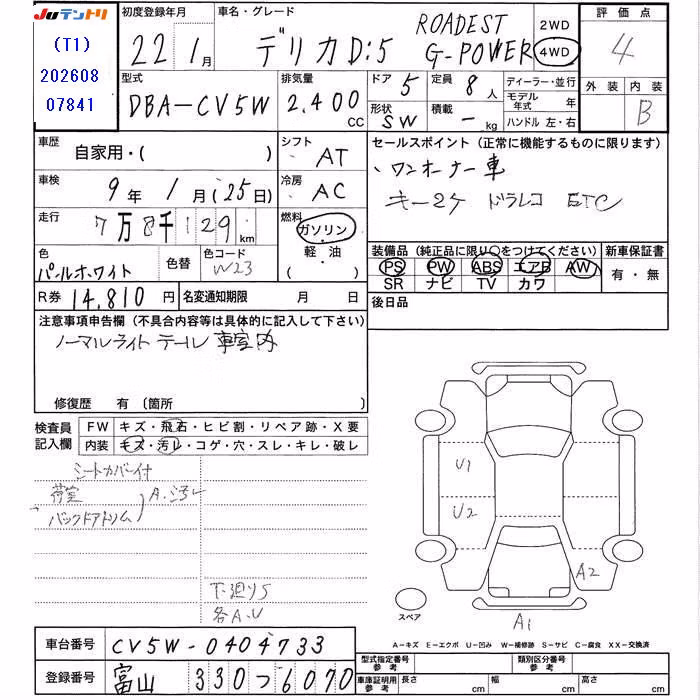 JUテントリ
(T1)
202608
07841
初度登録年月
22 1月
車名・グレード
デリカD:5
ROADEST
G-POWER
2WD
4WD
評価点
4
外装 内装
B
型式
DBA-CV5W
排気量
2.400
CC
ドア
5
定員
8人
形状
SW
積載
- kg
ディーラー・並行
モデル年式 年
ハンドル 左・右
車歴
自家用・( )
シフト
AT
セールスポイント (正常に機能するものに限ります)
ワンオーナー車
キー2ケ ドラレコ ETC
車検
9年 1月 (25日)
冷房
AC
走行
7万8千129 km
燃料
ガソリン
軽・油
( )
色
パールホワイト
色替
色コード
W23
装備品 (純正品に限り○をつけてください)
PS PW ABS エアB AW
SR ナビ TV カワ
新車保証書
有・無
R券 14,810 円
名変通知期限 月 日
後日品
注意事項申告欄 (不具合内容等は具体的に記入して下さい)
ノーマルライト テール 車室内
修復歴 有 (箇所 )
検査員
記入欄
FW キズ・飛石・ヒビ割・リペア跡・X要
内装 キズ・汚レ・コゲ・穴・スレ・キレ・破レ
シートカバー付
荷室
バックドアトリム
A・汚レ
下廻りS
各A.U
U1
U2
A2
A1
スペア
A-キズ E-エクボ U-凹み W-補修跡 S-サビ C-腐食 XX-交換済
車台番号 CV5W-0404733
登録番号 富山 330 つ 6070
型式指定番号
参考
類別区分番号
参考
車庫証明用
参考
長さ cm 幅 cm 高さ cm